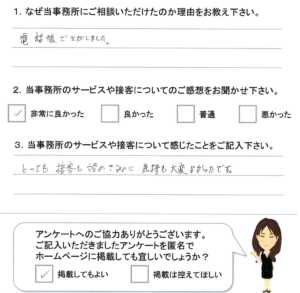 1. なぜ当事務所にご相談いただけたのか理由をお教え下さい。
電話帳でさがしました。
2. 当事務所のサービスや接客についてのご感想をお聞かせ下さい。
✓ 非常に良かった 良かった 普通 悪かった
3. 当事務所のサービスや接客について感じたことをご記入下さい。
とっても 接客も 気持も大変よかったです。
アンケートへのご協力ありがとうございます。
ご記入いただきましたアンケートを匿名で
ホームページに掲載しても宜しいでしょうか?
✓ 掲載してもよい 掲載は控えてほしい